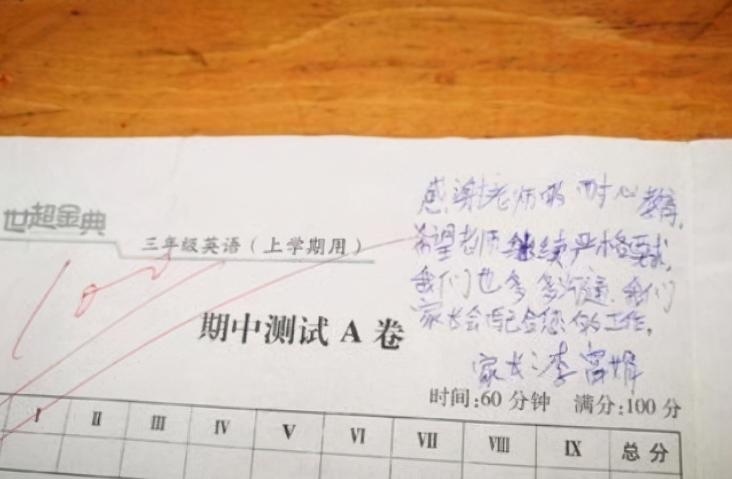 世超金典
三年级英语(上学期用)
100
感谢老师的耐心教育,
希望老师继续严格要求,
我们也多多沟通,我们
家长会配合您的工作。
家长:李富娟
期中测试 A 卷
时间:60 分钟 满分:100 分
I II III IV V VI VII VIII IX 总分